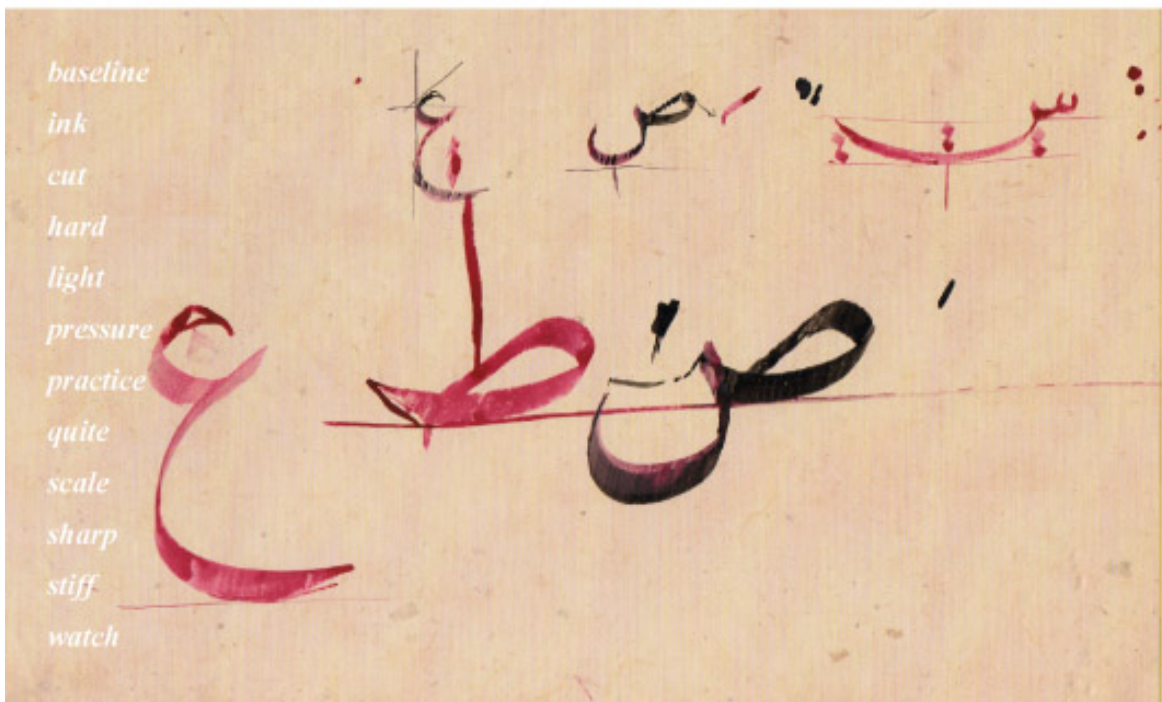 baseline
ink
cut
hard
light
pressure
practice
quite
scale
sharp
stiff
watch
س ص ع
ص ط ع